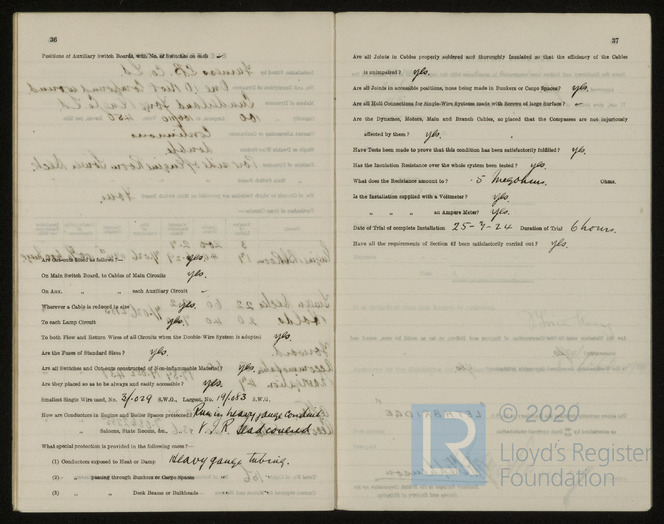 36
Positions of Auxiliary Switch Boards, with No. of Switches on each -
Are Cut-outs fitted as follows?
On Main Switch Board, to Cables of Main Circuits yes.
On Aux. " " each Auxiliary Circuit -
Wherever a Cable is reduced in size yes.
To each Lamp Circuit yes.
To both Flow and Return Wires of all Circuits when the Double-Wire System is adopted yes.
Are the Fuses of Standard Sizes? yes.
Are all Switches and Cut-outs constructed of Non-inflammable Material? yes.
Are they placed so as to be always and easily accessible? yes.
Smallest Single Wire used, No. 3/.029 S.W.G., Largest, No. 19/.083 S.W.G.
How are Conductors in Engine and Boiler Spaces protected? Run in heavy gauge conduit
" " Saloons, State Rooms, &c., " V.I.R. Lead covered
What special protection is provided in the following cases?—
(1) Conductors exposed to Heat or Damp Heavy gauge tubing.
(2) " passing through Bunkers or Cargo Spaces
(3) " " Deck Beams or Bulkheads
37
Are all Joints in Cables properly soldered and thoroughly insulated so that the efficiency of the Cables
is unimpaired? yes.
Are all Joints in accessible positions, none being made in Bunkers or Cargo Spaces? yes.
Are all Hull Connections for Single-Wire Systems made with Screws of large Surface? -
Are the Dynamos, Motors, Main and Branch Cables, so placed that the Compasses are not injuriously
affected by them? yes.
Have Tests been made to prove that this condition has been satisfactorily fulfilled? yes.
Has the Insulation Resistance over the whole system been tested? yes.
What does the Resistance amount to? .5 Megohms. Ohms.
Is the Installation supplied with a Voltmeter? yes.
" " " an Ampere Meter? yes.
Date of Trial of complete Installation 25-7-24 Duration of Trial 6 hours.
Have all the requirements of Section 42 been satisfactorily carried out? yes.
© 2020
Lloyd's Register
Foundation